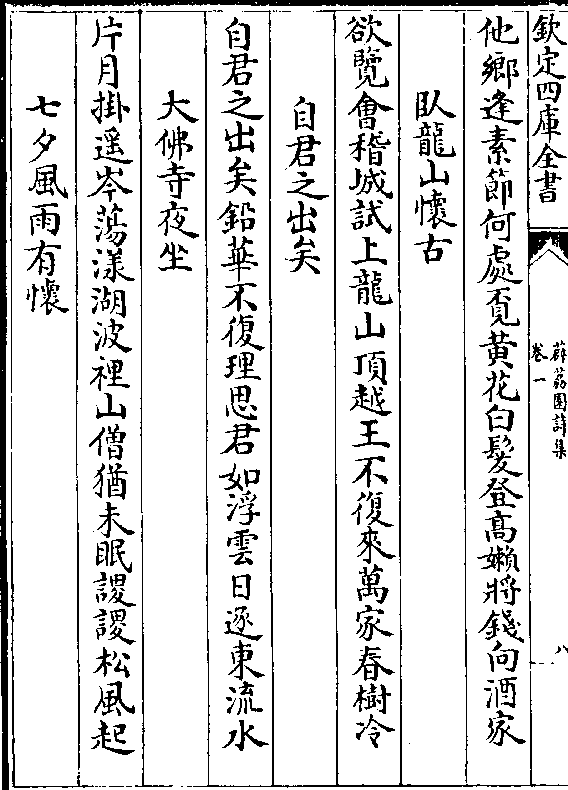 欽定四庫全書
薜荔園詩集
卷一
八
他鄉逢素節何處覔黄花白髪登髙嬾將錢向酒家
卧龍山懷古
欲覽㑹稽城試上龍山頂越王不復來萬家春樹冷
自君之出矣
自君之出矣鉛華不復理思君如浮雲日逐東流水
大佛寺夜坐
片月掛遥岑蕩漾湖波裡山僧猶未眠謖謖松風起
七夕風雨有懷